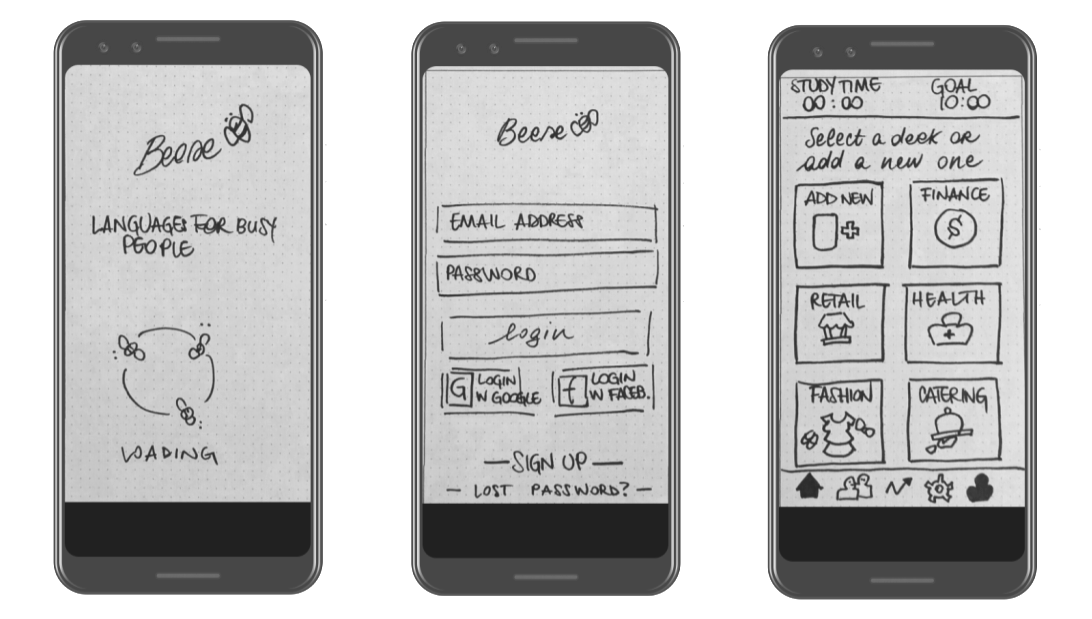 Beese
LANGUAGES FOR BUSY
PEOPLE
LOADING
Beese
EMAIL ADDRESS
PASSWORD
login
G LOGIN
W GOOGLE
f LOGIN
W FACEB.
— SIGN UP —
— LOST PASSWORD? —
STUDY TIME
00:00
GOAL
10:00
Select a deck or
add a new one
ADD NEW
FINANCE
$
RETAIL
HEALTH
FASHION
CATERING